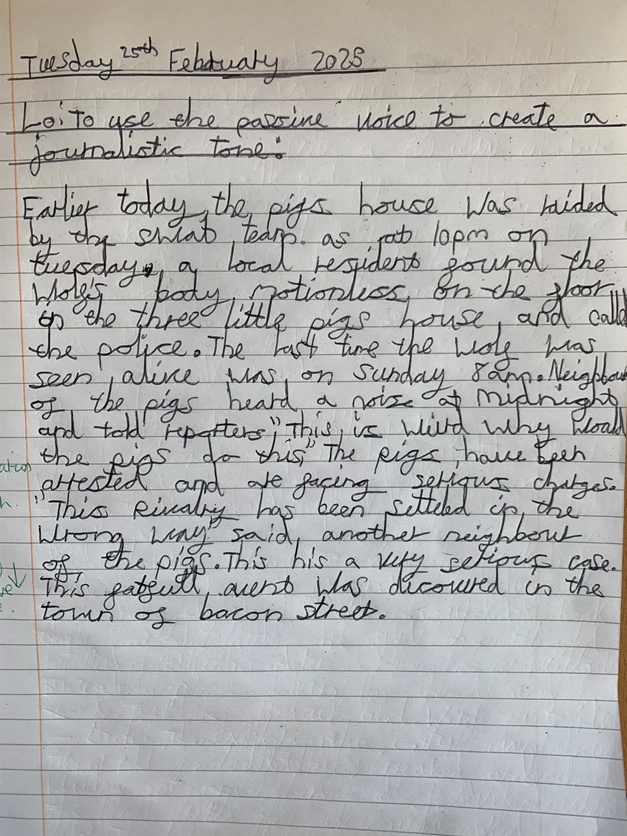 Tuesday 25th February 2025
Lo: To use the passive voice to create a
journalistic tone:
Earlier today, the pigs house was raided
by the swat team. as at 10pm on
tuesday, a local resident found the
Wolf's body, motionless, on the floor
in the three little pigs house, and call
the police. The last time the Wolf was
seen alive was on Sunday 8am. Neighbou
of the pigs heard a noise at midnight
and told reporters, "This is wierd why would
the pigs do this," The pigs have been
arrested and are facing serious charges.
"This Rivalry has been settled in the
wrong way" said, another neighbour
of the pigs. This his a very serious case.
This fatefull avent was dicovred in the
town of bacon street.